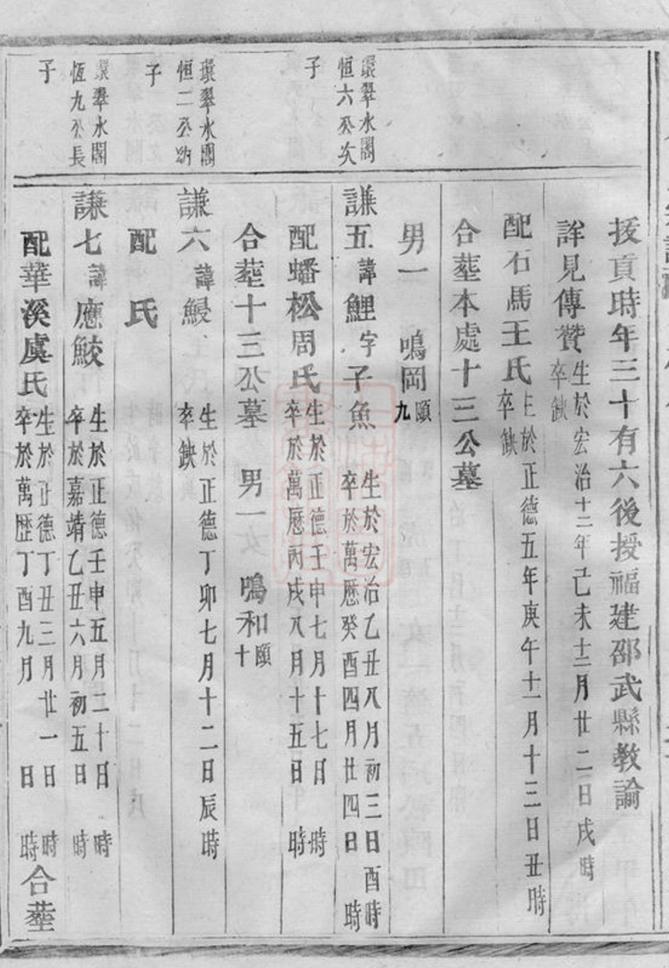 拔貢時年三十有六後授福建邵武縣教諭
詳見傳贊 生於宏治十二年己未十二月廿二日戌時 卒缺
配石馬王氏 生於正德五年庚午十一月十三日丑時 卒缺
合塟本處十三公墓
男一 鳴岡 頤九
環翠水閣恒六公次子
謙五 諱鯉字子魚 生於宏治乙丑八月初三日酉時 卒於萬歷癸酉四月廿四日 時
配蟠松周氏 生於正德壬申七月十七日 時 卒於萬歷丙戌八月十五日 時
合塟十三公墓 男一女 鳴和 頤十
環翠水閣恒二公幼子
謙六 諱鰻 生於正德丁卯七月十二日辰時 卒缺
配 氏
環翠水閣恆九公長子
謙七 諱應鮫 生於正德壬申五月二十日 時 卒於嘉靖乙丑六月初五日 時
配華溪虞氏 生於正德丁丑三月廿一日 時 卒於萬歷丁酉九月 日 時 合塟